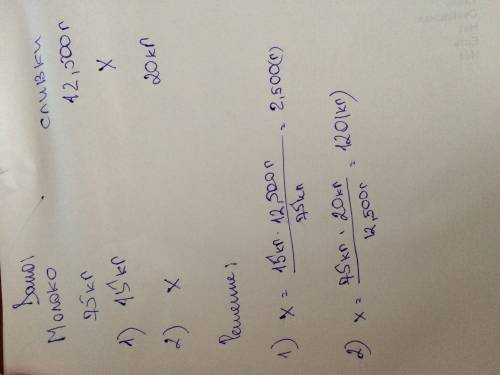 Дано:
Молоко сливки
75кг 12,500г
1) 15кг х
2) х 20кг
Решение:
1) х = 15кг · 12,500г / 75кг = 2,500(г)
2) х = 75кг · 20кг / 12,500г = 120(кг)